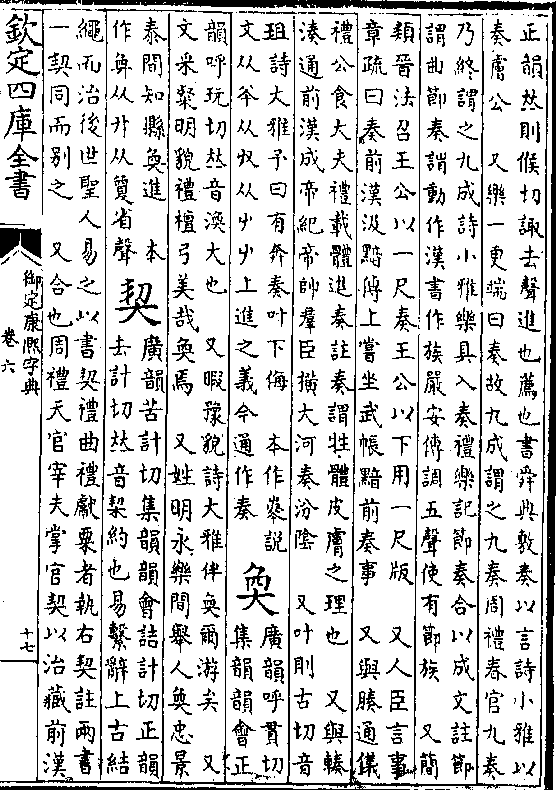 正韻𠀤則候切諏去聲進也薦也書舜典敷奏以言詩小雅以
奏膚公　又樂一更端曰奏故九成謂之九奏周禮春官九奏
乃終謂之九成詩小雅樂具入奏禮樂記節奏合以成文註節
謂曲節奏謂動作漢書作族嚴安傳調五聲使有節族　又簡
類晉法召王公以一尺奏王公以下用一尺版　又人臣言事
章疏曰奏前漢汲黯傳上嘗坐武帳黯前奏事　又與腠通儀
禮公食大夫禮載體進奏註奏謂牲體皮膚之理也　又與輳
湊通前漢成帝紀帝帥羣臣橫大河奏汾陰　又叶則古切音
珇詩大雅予曰有奔奏叶下侮　本作𡴝說
文从𠦍从廾从屮屮上進之義今通作奏
奐
廣韻呼貫切
集韻韻會正
韻呼玩切𠀤音渙大也　又暇豫貌詩大雅伴奐爾游矣　又
文采粲明貌禮檀弓美哉奐焉　又姓明永樂間舉人奐忠景
泰間知縣奐進　本
作奐从廾从夐省聲
契
廣韻苦計切集韻韻會詰計切正韻
去計切𠀤音栔約也易繫辭上古結
繩而治後世聖人易之以書契禮曲禮獻粟者執右契註兩書
一契同而別之　又合也周禮天官宰夫掌官契以治藏前漢
欽定四庫全書
御定康熙字典
卷六
十七